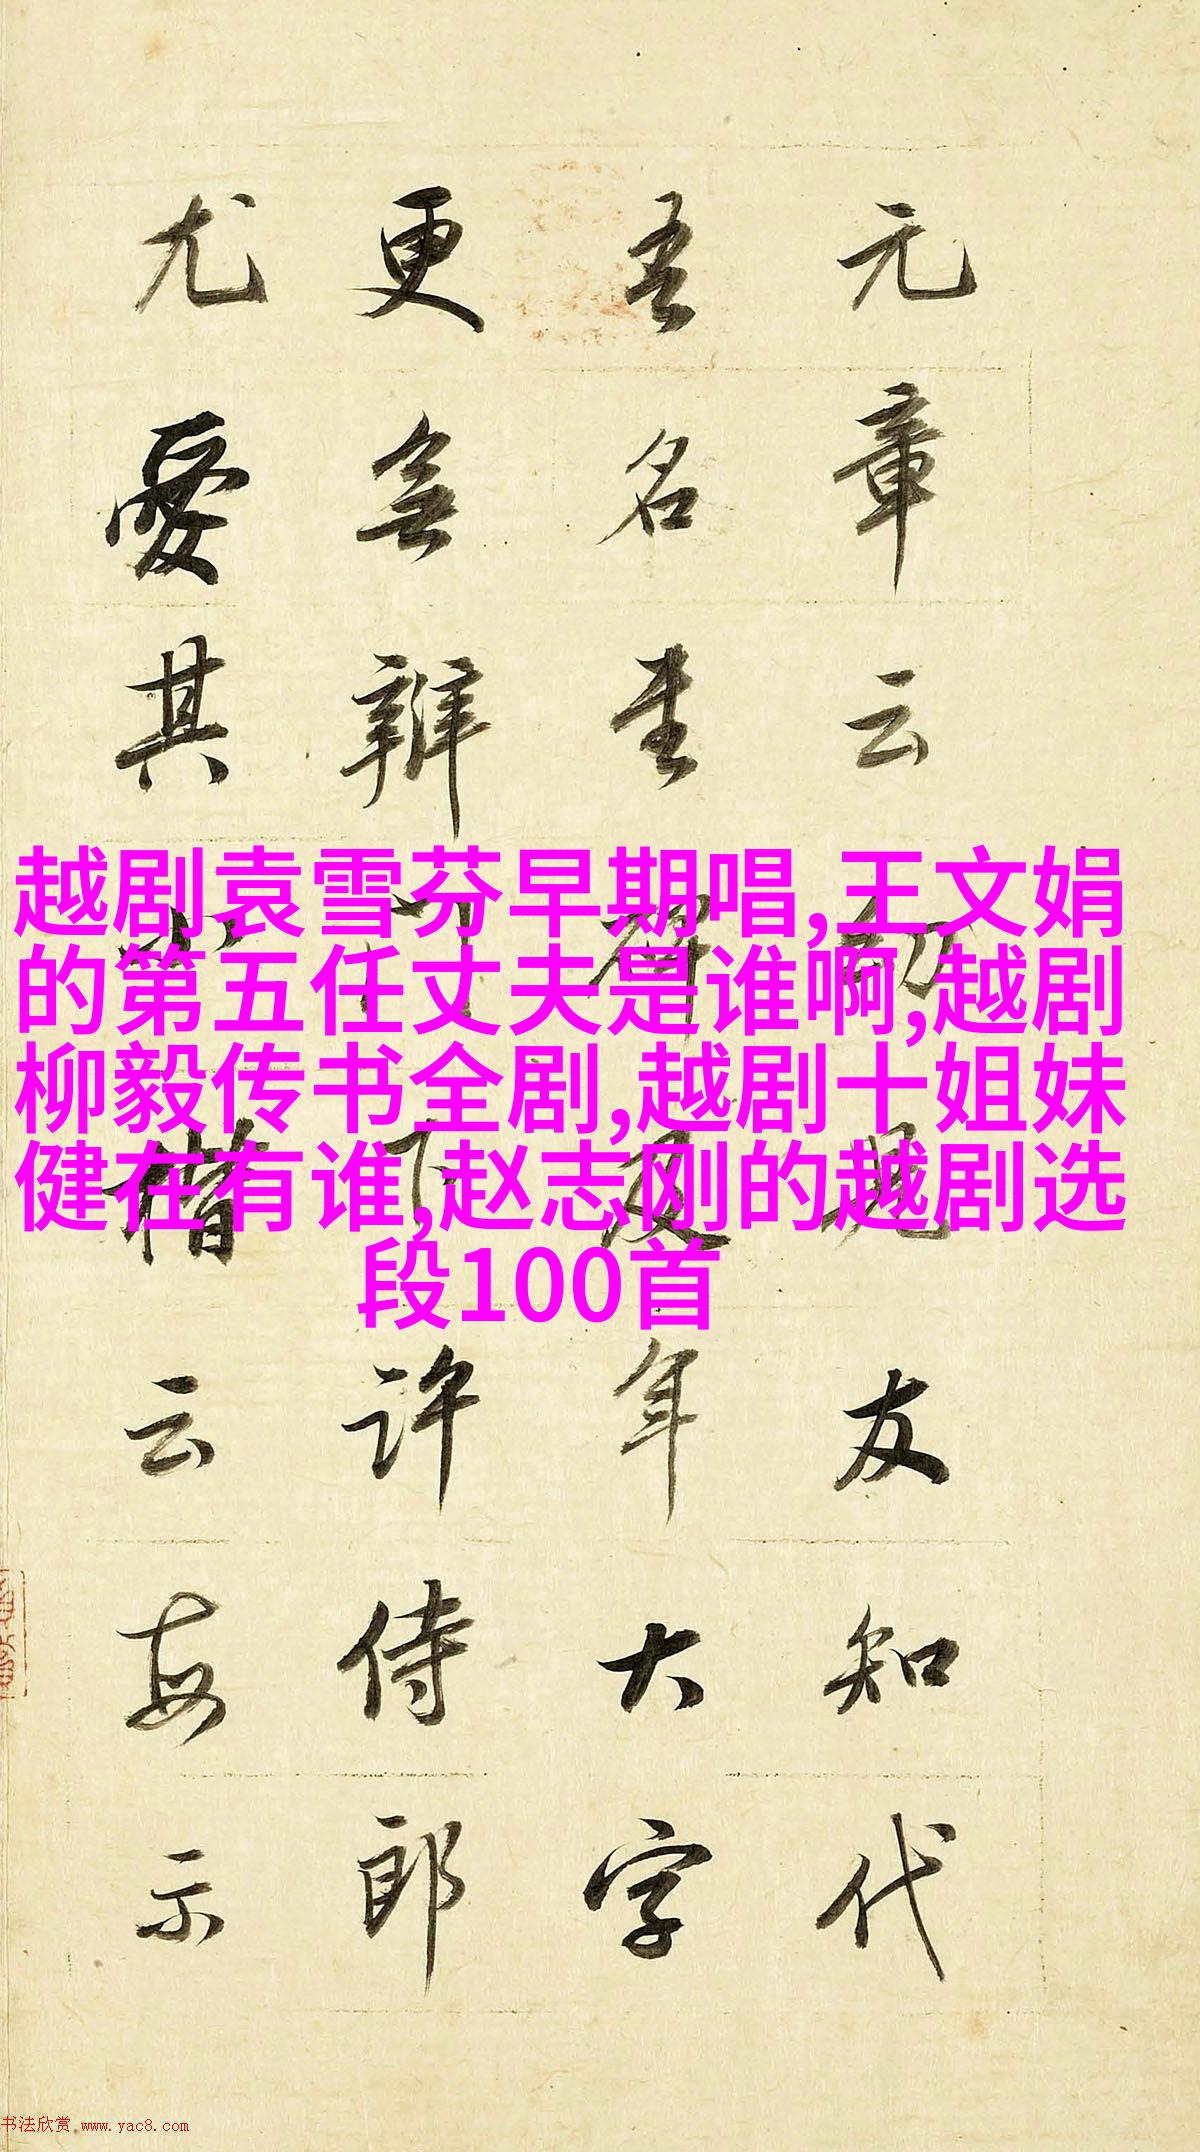 元章云幼兒友知代
吾名書碑及年大字
更無辨門下許侍郎
尤愛其小楷云每示
越剧袁雪芬早期唱,王文娟
的第五任丈夫是谁啊,越剧
柳毅传书全剧,越剧十姐妹
健在有谁,赵志刚的越剧选
段100首
书法欣赏 www.yac8.com